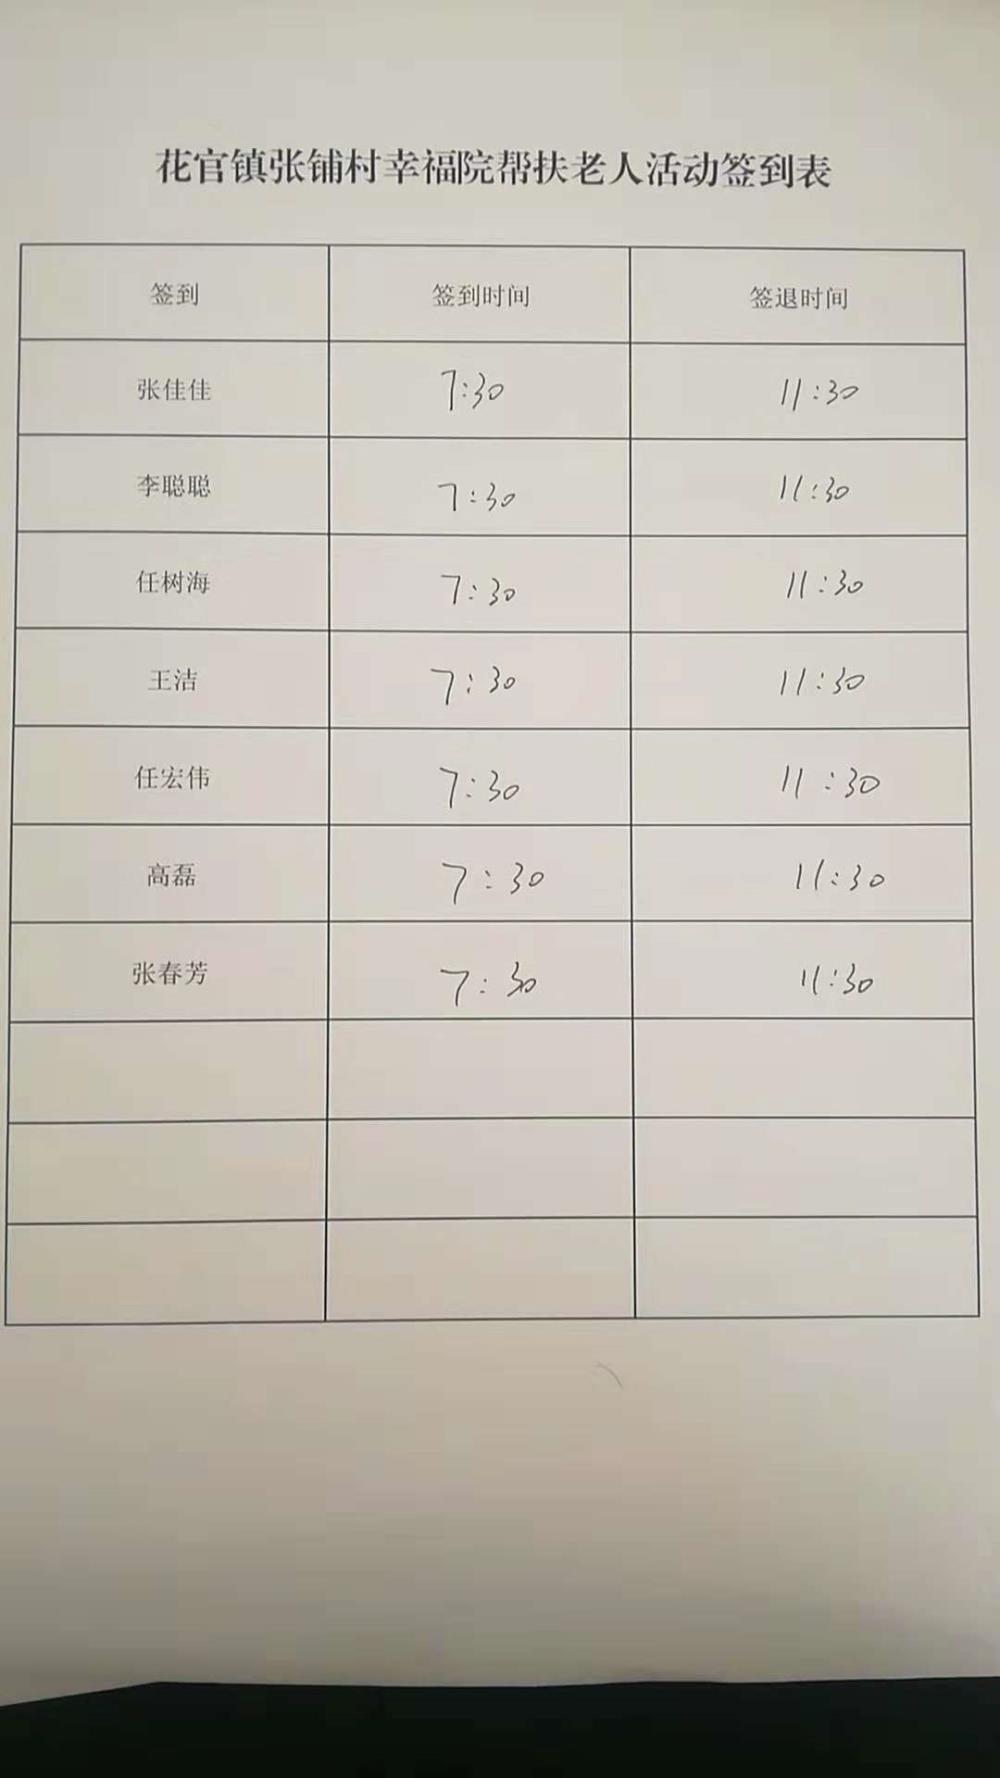 花官镇张铺村幸福院帮扶老人活动签到表
签到 签到时间 签退时间
张佳佳 7:30 11:30
李聪聪 7:30 11:30
任树海 7:30 11:30
王洁 7:30 11:30
任宏伟 7:30 11:30
高磊 7:30 11:30
张春芳 7:30 11:30